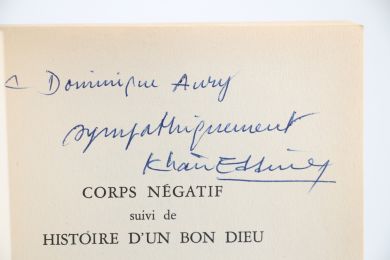 à Dominique Aury
sympathiquement
Khaïr-Eddine
CORPS NÉGATIF
suivi de
HISTOIRE D'UN BON DIEU